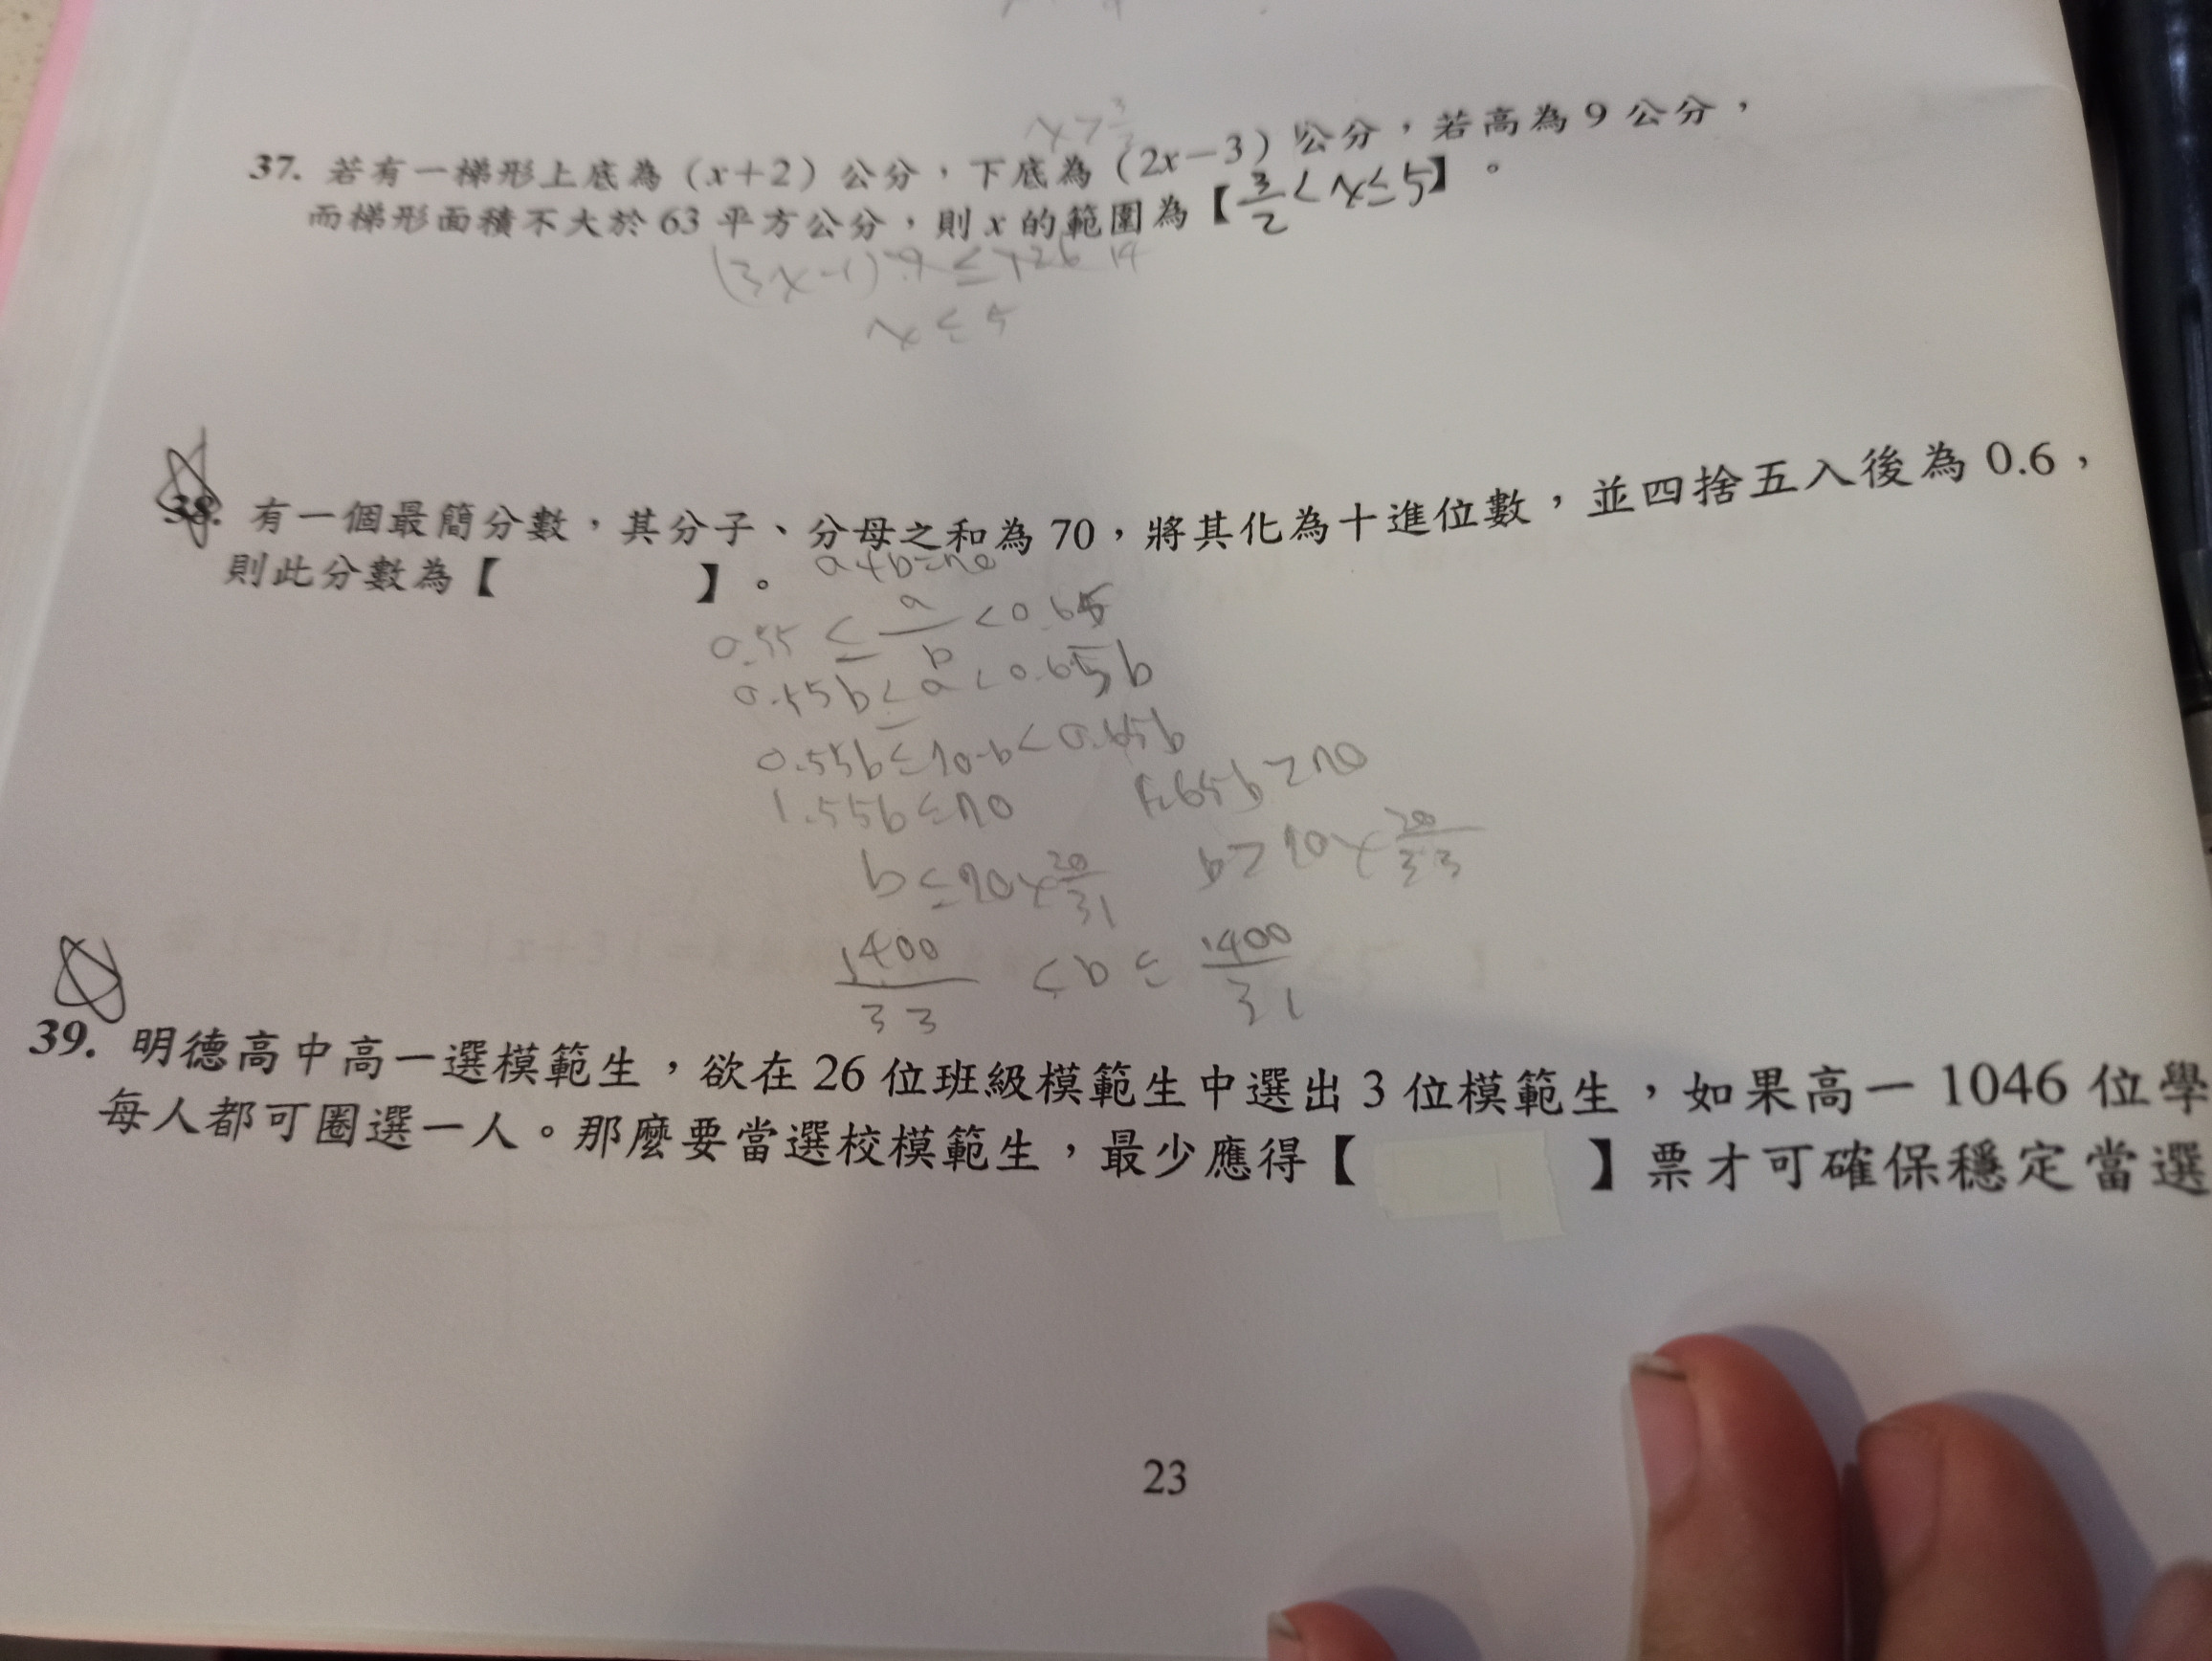 x > 3/2
37. 若有一梯形上底為（x＋2）公分，下底為（2x－3）公分，若高為 9 公分，
而梯形面積不大於 63 平方公分，則 x 的範圍為【3/2 < x ≤ 5】。
(3x-1)·9 ≤ 126 14
x ≤ 5
38. 有一個最簡分數，其分子、分母之和為 70，將其化為十進位數，並四捨五入後為 0.6，
則此分數為【 】。
a+b=70
0.55 ≤ a/b < 0.65
0.55b ≤ a < 0.65b
0.55b ≤ 70-b < 0.65b
1.55b ≤ 70 1.65b > 70
b ≤ 70 × 20/31 b > 70 × 20/33
1400/33 < b ≤ 1400/31
39. 明德高中高一選模範生，欲在 26 位班級模範生中選出 3 位模範生，如果高一 1046 位學
每人都可圈選一人。那麼要當選校模範生，最少應得【 】票才可確保穩定當選
23